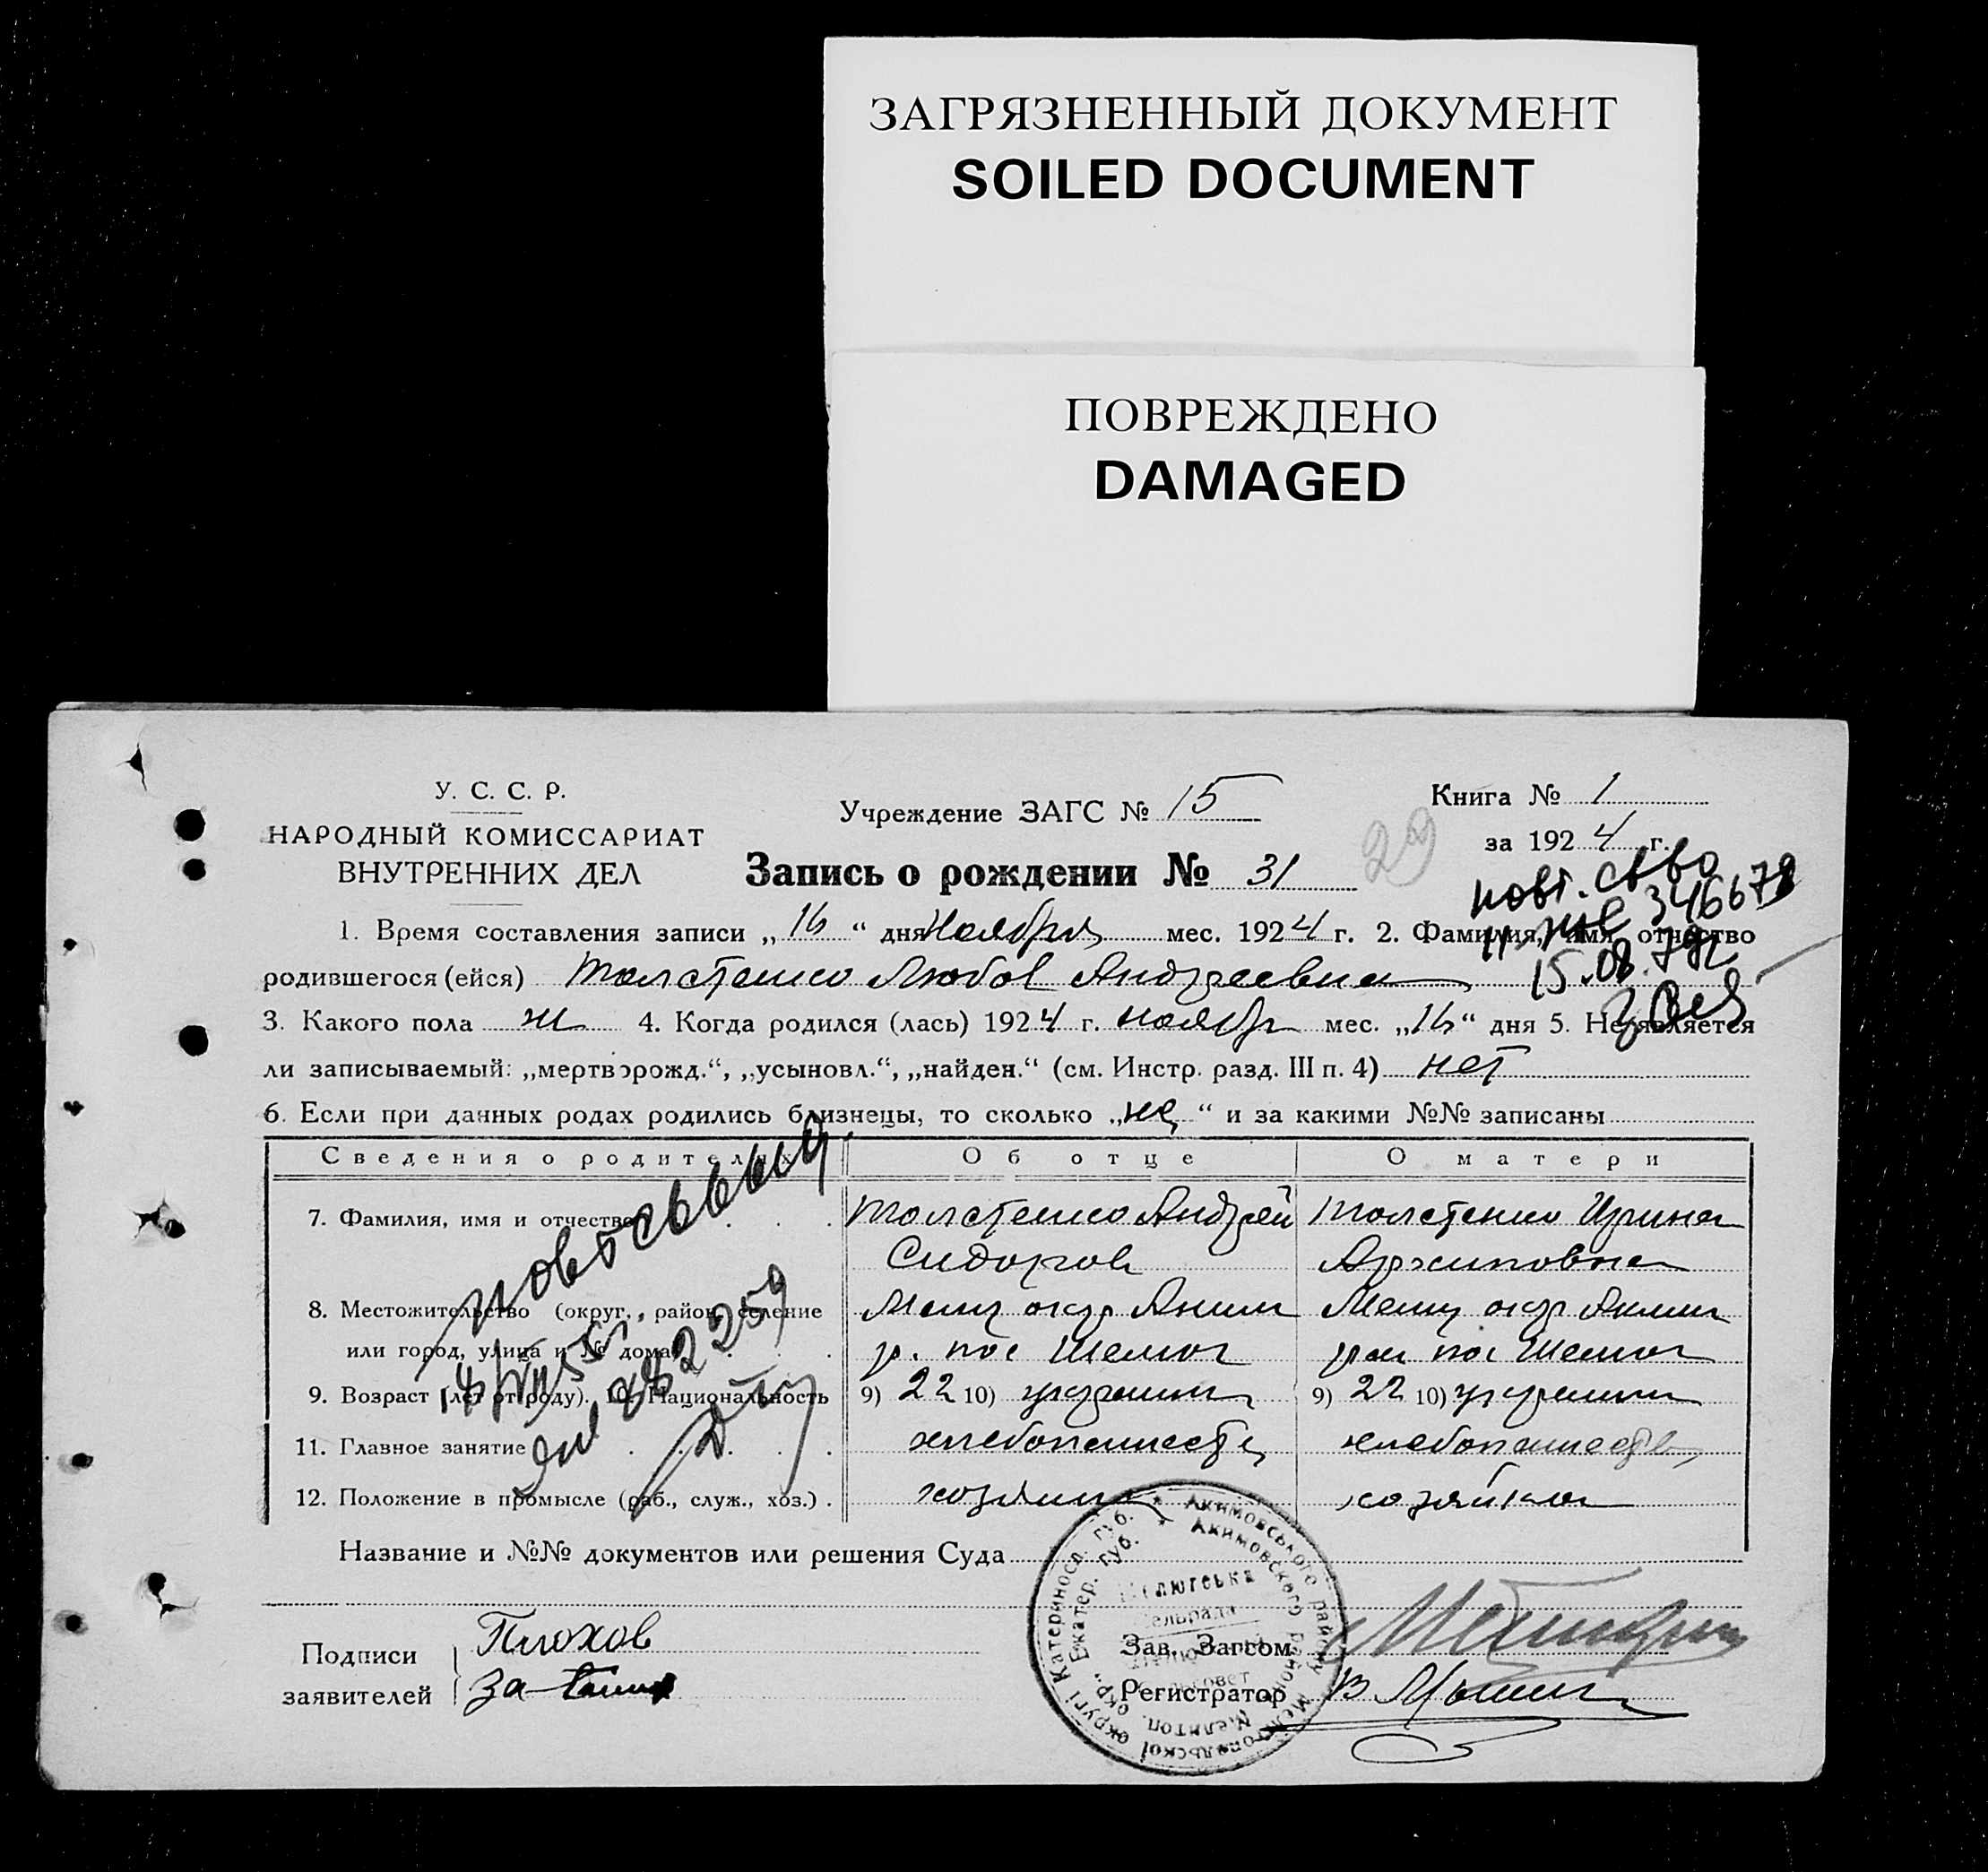 ЗАГРЯЗНЕННЫЙ ДОКУМЕНТ
SOILED DOCUMENT
ПОВРЕЖДЕНО
DAMAGED
У. С. С. Р.
НАРОДНЫЙ КОМИССАРИАТ
ВНУТРЕННИХ ДЕЛ
Учреждение ЗАГС № 15
Книга № 1
за 1924 г.
Запись о рождении № 31
29
повт. св-во
346678
15.08.79г
1. Время составления записи „16“ дня Ноября мес. 1924 г. 2. Фамилия, имя, отчество
родившегося (ейся) Толстенко Любов Андреевна
3. Какого пола ж 4. Когда родился (лась) 1924 г. ноябр мес. „16“ дня 5. Не является
ли записываемый: „мертворожд.“, „усыновл.“, „найден.“ (см. Инстр. разд. III п. 4) нет
6. Если при данных родах родились близнецы, то сколько „не“ и за какими №№ записаны
Сведения о родителях Об отце О матери
7. Фамилия, имя и отчество Толстенко Андрей Толстенко Ирина
Сидоров Архиповна
8. Местожительство (округ, район, селение Мелит окр Аким Мелит окр Аким
или город, улица и № дома) р. пос Шелюг рай пос Шелюг
9. Возраст (лет от роду). 10. Национальность 9) 22 10) украин 9) 22 10) украин
11. Главное занятие хлебопашеств хлебопашеств
12. Положение в промысле (раб., служ., хоз.) хозяин хозяйка
882259
Название и №№ документов или решения Суда
Подписи
заявителей
Плохов
За
Зав. Загсом
Регистратор
Акимовського району Мелітопольскої округі Катериносл. губ.
Акимовского района Мелитоп. окр. Екатер. губ.
Шелюгська
сельрада